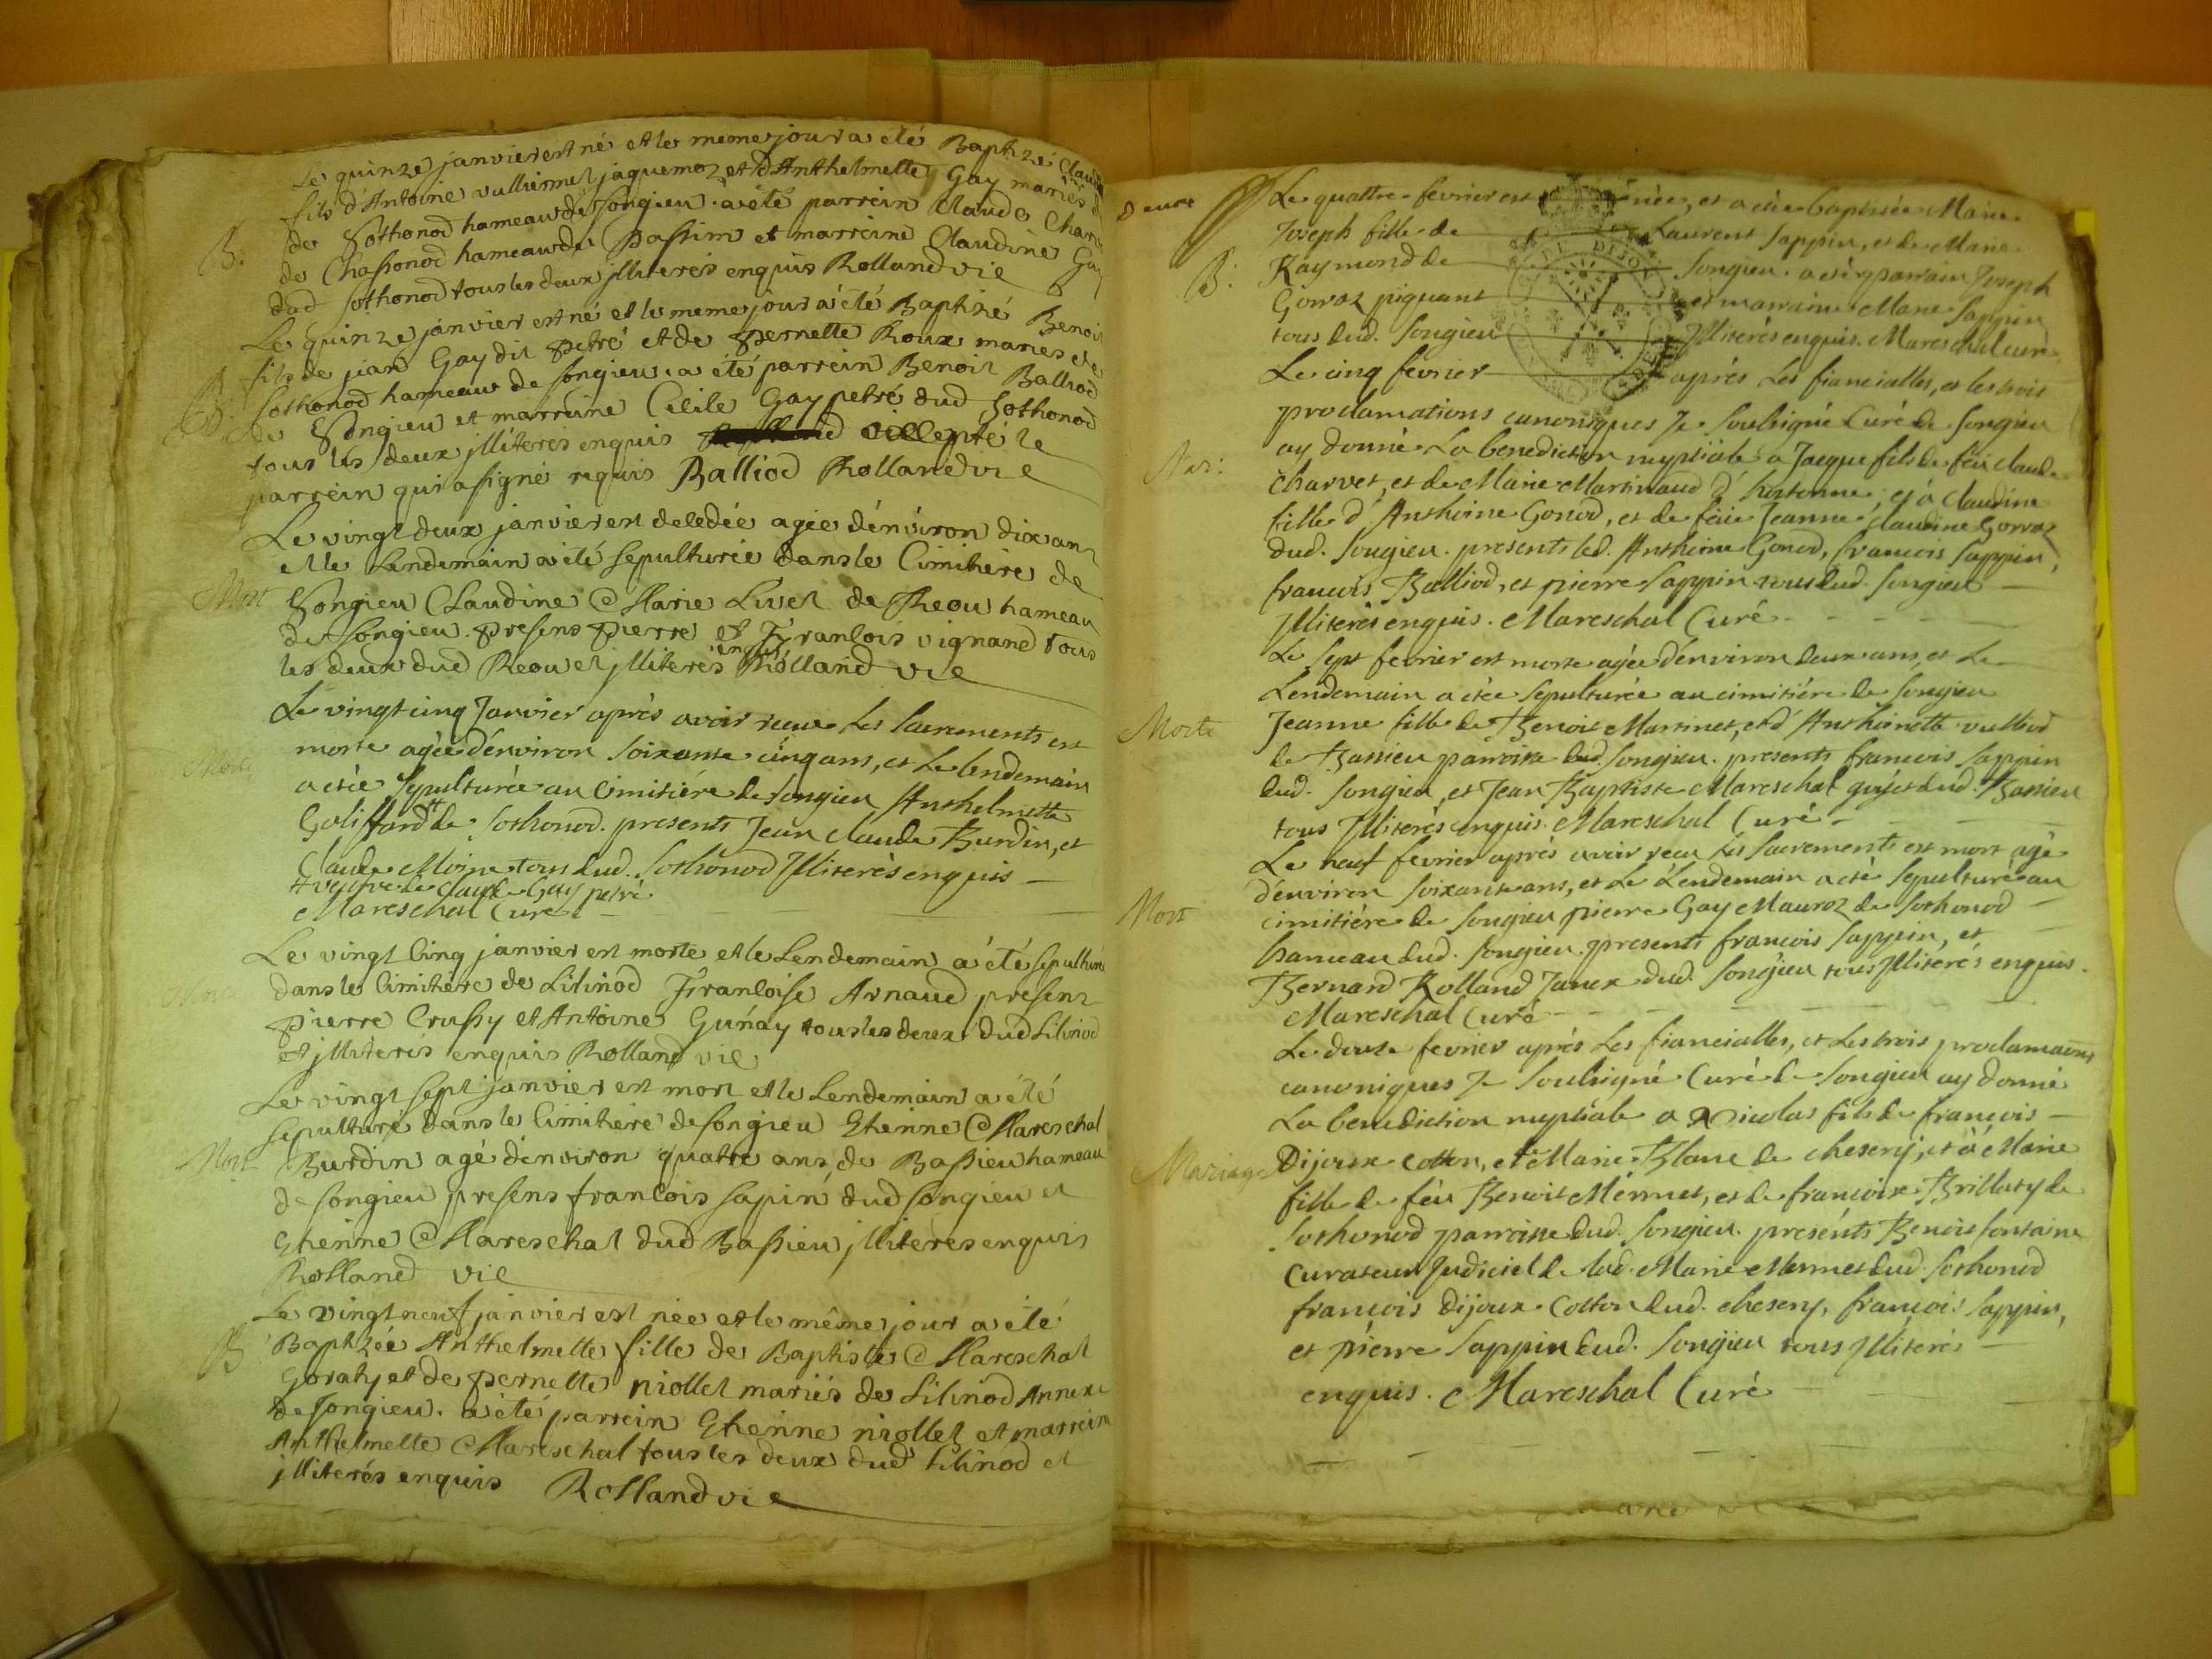 Le quinze janvier est né et le meme jour a été Baptizé Claude
fils d'Antoine vulliermet jaquemoz et d'Anthelmette Gay mariés
B. de Sothonod hameau de Songieu. a été parrein Claude
de Chassonod hameau de Passim et marreine Claudine Gay
dud Sothonod tous les deux jlliterés enquis Rolland vie
Le quinze janvier est né et le meme jour a été Baptizé Benoit
fils de jean Gay dit petré et de pernette Roux mariés de
B. Sothonod hameau de songieu. a été parrein Benoit Balliod
de Songieu et marreine Cécile Gay petré dud Sothonod
tous les deux jlliterés enquis excepté le
parrein qui a signé requis Balliod Rolland vie
Le vingt deux janvier est deledée agée d'énviron dix ans
et le Lendemain a été sepulturée dans le Cimitiere de
Mort Songieu Claudine Marie Livet de Reou hameau
de Songieu. presens pierre et François vignand tous
les deux dud Reou et jlliterés enquis Rolland vie
Le vingt cinq Janvier après avoir receu les sacrements est
morte agée d'énviron soixante cinq ans, et le lendemain
Morte a etée sepulturée au cimitiére de songieu Anthelmette
Goliffard # de Sothonod. presents Jean claude Burdin, et
Claude Moine tous dud. Sothonod Jlliterés enquis
# veufve de claude Gay petré
Mareschal Curé
Le vingt cinq janvier est morte et le Lendemain a été sepulturé
dans le Cimitiere de Lilinod Françoise Arnaud present
pierre Crussy et Antoine Gunay tous les deux dud Lilinod
et jlliteris enquis Rolland vie
Le vingt sept janvier est mort et le Lendemain a été
sepulturé dans le Cimitiere de songieu Etienne Mareschal
Mort Burdin agé d'énviron quatre ans de Bassieu hameau
de songieu presens françois sapin dud songieu et
Etienne Mareschal dud Bassieu jlliterés enquis
Rolland vie
Le vingt neuf janvier est née et le même jour a été
B Baptizée Anthelmette fille de Baptiste Mareschal
Goraty et de pernette niollet mariés de Lilinod Annexe
de songieu. a été parrein Etienne niollet et marreine
Anthelmette Mareschal tous les deux dud Lilinod et
jlliterés enquis Rolland vie
Le quattre fevrier est née, et a etée baptisée Marie
Joseph fille de Laurent Sappin, et de Marie
B: Raymond de Songieu. a été parrain Joseph
Gorroz piquant et marraine Marie Sappin
tous dud. Songieu Jlliterés enquis. Mareschal curé
Le cinq fevrier après les fiancialles, et les trois
proclamations canoniques Je soussigné Curé de Songieu
Mar: ay donné la benediction nuptiale a Jacque fils de feu claude
Charvet, et de Marie Martinaud d'hotonne, et a Claudine
fille d'Anthoine Gonod, et de feüe Jeanne Claudine Gorroz
dud. Songieu. presents led. Anthoine Gonod, françois Sappin,
françois Balliod, et pierre Sappin tous dud. Songieu
Jlliterés enquis. Mareschal Curé
Le sept fevrier est morte agée d'énviron deux ans, et le
Lendemain a etée sepulturée au cimitiére de Songieu
Morte Jeanne fille de Benoit Martinet, et d'Anthoinette vulliod
de Bassieu parroisse dud. Songieu. presents françois Sappin
dud. Songieu, et Jean Baptiste Mareschal dud. Bassieu
tous Jlliterés enquis. Mareschal Curé
Le neuf fevrier après avoir receu les sacrements est mort agé
d'énviron soixante ans, et le Lendemain a eté sepulturé au
Mort cimitiére de Songieu pierre Gay Mauroz de Sothonod
hameau dud. Songieu. presents françois Sappin, et
Bernard Rolland Janex dud. Songieu tous Jlliterés enquis.
Mareschal Curé
Le douze fevrier après les fiancialles, et les trois proclamations
canoniques Je soussigné Curé de Songieu ay donné
La benediction nuptiale a Nicolas fils de françois
Mariage Dijoux Cotton, et Marie Blanc de chesery, et à Marie
fille de feu Benoit Mermet, et de françoise Brillaty de
Sothonod parroisse dud. Songieu. presents Benoit fontaine
Curateur Judiciel de lad. Marie Mermet dud. Sothonod
françois Dijoux Cotton dud. chesery, françois Sappin,
et pierre Sappin dud. Songieu tous Jlliterés
enquis. Mareschal Curé